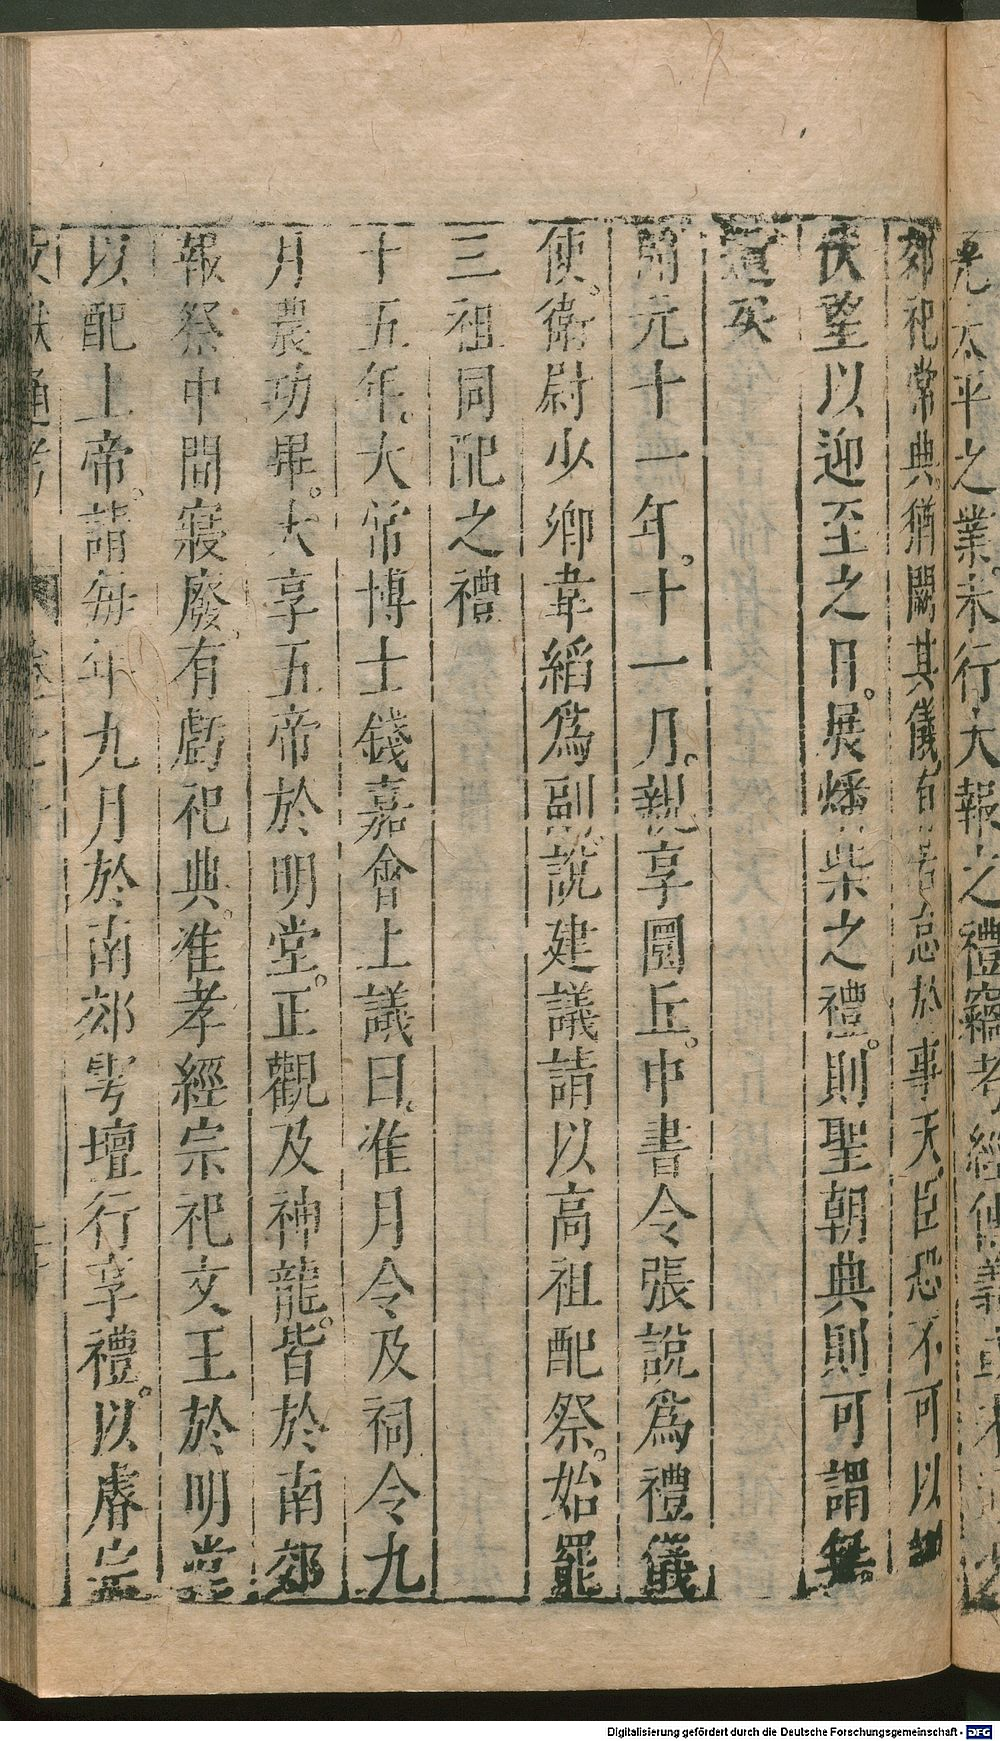 光太平之業未行大報之禮竊考經傳義或
郊祀常典猶闕其儀有若怠於事天臣恐不可以訓
伏望以迎至之日展燔柴之禮則聖朝典則可謂無
遺矣
開元十一年十一月親享圜丘中書令張說爲禮儀
使衛尉少卿韋縚爲副說建議請以高祖配祭始罷
三祖同配之禮
十五年大常博士錢嘉會上議曰准月令及祠令九
月農功畢大享五帝於明堂正觀及神龍皆於南郊
報祭中間寢廢有虧祀典准孝經宗祀文王於明堂
以配上帝請每年九月於南郊雩壇行享禮以睿宗
文獻通考 卷之七十
Digitalisierung gefördert durch die Deutsche Forschungsgemeinschaft - DFG